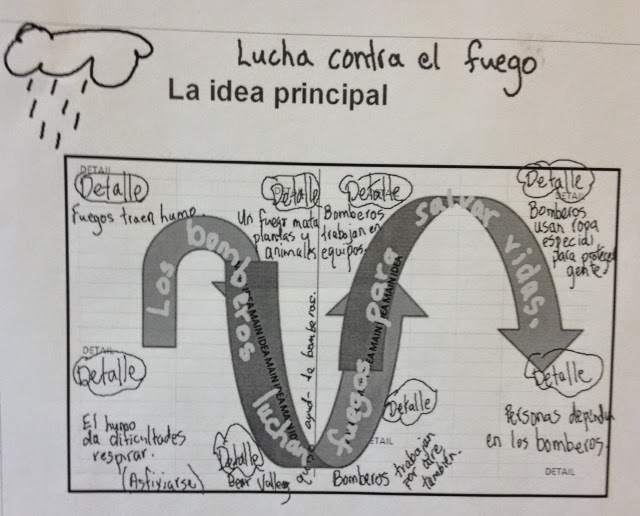 Lucha contra el fuego
La idea principal
DETAIL
Detalle
Fuegos traen humo.
Detalle
Un fuego mata
plantas y
animales
Detalle
Bomberos
trabajan en
equipos.
Detalle
DETAIL
Bomberos
usan ropa
especial
para proteger
gente
Los bomberos luchan fuegos para salvar vidas.
MAIN IDEA MAIN IDEA MAIN IDEA
MAIN IDEA MAIN IDEA
DETAIL
Detalle
El humo
da dificultades
respirar.
(Asfixiarse)
Detalle
Bear Valley
bomberos.
Detalle
DETAIL
Bomberos trabajan
por aire
también.
Detalle
Personas dependen
en los bomberos.
DETAIL